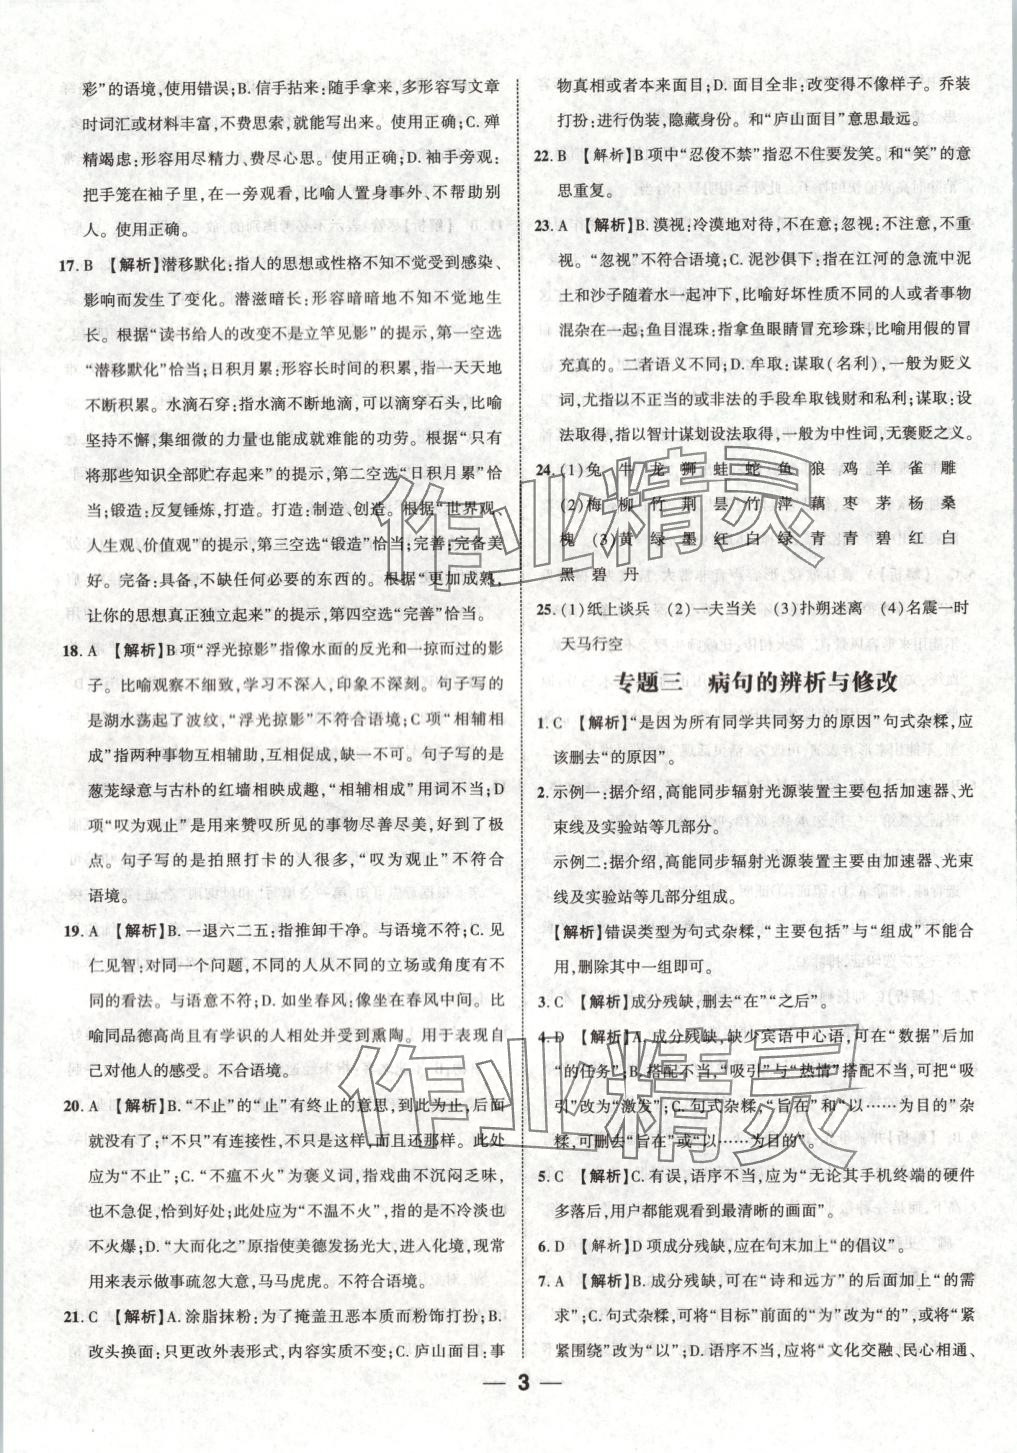 彩”的语境，使用错误；B. 信手拈来：随手拿来，多形容写文章
时词汇或材料丰富，不费思索，就能写出来。使用正确；C. 殚
精竭虑：形容用尽精力、费尽心思。使用正确；D. 袖手旁观：
把手笼在袖子里，在一旁观看，比喻人置身事外、不帮助别
人。使用正确。
17. B 【解析】潜移默化：指人的思想或性格不知不觉受到感染、
影响而发生了变化。潜滋暗长：形容暗暗地不知不觉地生
长。根据“读书给人的改变不是立竿见影”的提示，第一空选
“潜移默化”恰当；日积月累：形容长时间的积累，指一天天地
不断积累。水滴石穿：指水滴不断地滴，可以滴穿石头，比喻
坚持不懈，集细微的力量也能成就难能的功劳。根据“只有
将那些知识全部贮存起来”的提示，第二空选“日积月累”恰
当；锻造：反复锤炼，打造。打造：制造、创造。根据“世界观、
人生观、价值观”的提示，第三空选“锻造”恰当；完善：完备美
好。完备：具备、不缺任何必要的东西的。根据“更加成熟，
让你的思想真正独立起来”的提示，第四空选“完善”恰当。
18. A 【解析】B 项“浮光掠影”指像水面的反光和一掠而过的影
子。比喻观察不细致，学习不深入，印象不深刻。句子写的
是湖水荡起了波纹，“浮光掠影”不符合语境；C 项“相辅相
成”指两种事物互相辅助，互相促成，缺一不可。句子写的是
葱茏绿意与古朴的红墙相映成趣，“相辅相成”用词不当；D
项“叹为观止”是用来赞叹所见的事物尽善尽美，好到了极
点。句子写的是拍照打卡的人很多，“叹为观止”不符合
语境。
19. A 【解析】B. 一退六二五：指推卸干净。与语境不符；C. 见
仁见智：对同一个问题，不同的人从不同的立场或角度有
不同的看法。与语意不符；D. 如坐春风：像坐在春风中间。比
喻同品德高尚且有学识的人相处并受到熏陶。用于表现自
己对他人的感受。不合语境。
20. A 【解析】B. “不止”的“止”有终止的意思，到此为止，后面
就没有了；“不只”有连接性，不只是这样，而且还那样。此处
应为“不止”；C. “不瘟不火”为褒义词，指戏曲不沉闷乏味，
也不急促，恰到好处；此处应为“不温不火”，指的是不冷淡也
不火爆；D. “大而化之”原指使美德发扬光大，进入化境，现常
用来表示做事疏忽大意，马马虎虎。不符合语境。
21. C 【解析】A. 涂脂抹粉：为了掩盖丑恶本质而粉饰打扮；B.
改头换面：只更改外表形式，内容实质不变；C. 庐山面目：事
物真相或者本来面目；D. 面目全非：改变得不像样子。乔装
打扮：进行伪装，隐藏身份。和“庐山面目”意思最远。
22. B 【解析】B 项中“忍俊不禁”指忍不住要发笑。和“笑”的意
思重复。
23. A 【解析】B. 漠视：冷漠地对待，不在意；忽视：不注意，不重
视。“忽视”不符合语境；C. 泥沙俱下：指在江河的急流中泥
土和沙子随着水一起冲下，比喻好坏性质不同的人或者事物
混杂在一起；鱼目混珠：指拿鱼眼睛冒充珍珠，比喻用假的冒
充真的。二者语义不同；D. 牟取：谋取（名利），一般为贬义
词，尤指以不正当的或非法的手段牟取钱财和私利；谋取：设
法取得，指以智计谋划设法取得，一般为中性词，无褒贬之义。
24. (1)兔 牛 龙 狮 蛙 蛇 鱼 狼 鸡 羊 雀 雕
(2)梅 柳 竹 荆 昙 竹 萍 藕 枣 茅 杨 桑
槐 (3)黄 绿 墨 红 白 绿 青 青 碧 红 白
黑 碧 丹
25. (1)纸上谈兵 (2)一夫当关 (3)扑朔迷离 (4)名震一时
天马行空
专题三 病句的辨析与修改
1. C 【解析】“是因为所有同学共同努力的原因”句式杂糅，应
该删去“的原因”。
2. 示例一：据介绍，高能同步辐射光源装置主要包括加速器、光
束线及实验站等几部分。
示例二：据介绍，高能同步辐射光源装置主要由加速器、光束
线及实验站等几部分组成。
【解析】错误类型为句式杂糅，“主要包括”与“组成”不能合
用，删除其中一组即可。
3. C 【解析】成分残缺，删去“在”“之后”。
4. D 【解析】A. 成分残缺，缺少宾语中心语，可在“数据”后加
“的任务”；B. 搭配不当，“吸引”与“热情”搭配不当，可把“吸
引”改为“激发”；C. 句式杂糅，“旨在”和“以……为目的”杂
糅，可删去“旨在”或“以……为目的”。
5. C 【解析】C. 有误，语序不当，应为“无论其手机终端的硬件
多落后，用户都能观看到最清晰的画面”。
6. D 【解析】D 项成分残缺，应在句末加上“的倡议”。
7. A 【解析】B. 成分残缺，可在“诗和远方”的后面加上“的需
求”；C. 句式杂糅，可将“目标”前面的“为”改为“的”，或将“紧
紧围绕”改为“以”；D. 语序不当，应将“文化交融、民心相通、
3
作业精灵
作业精灵